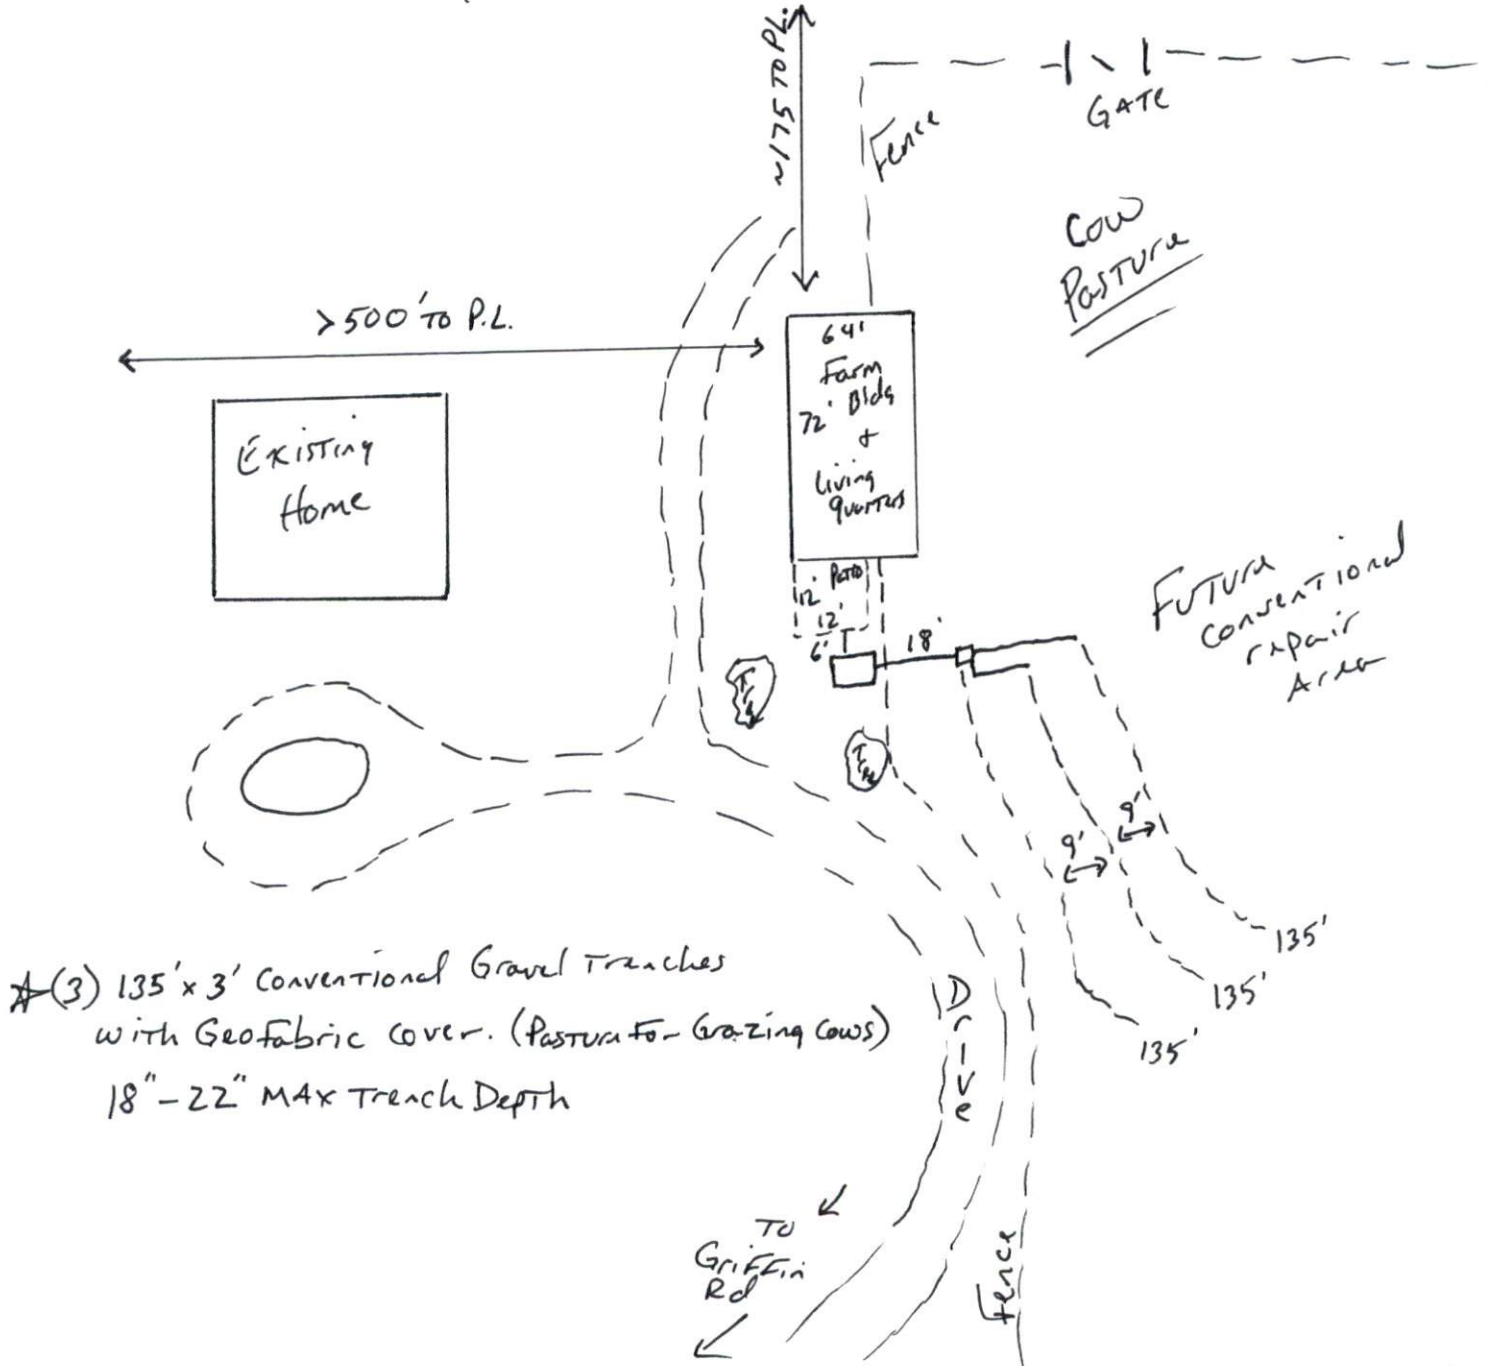 ~175 TO P.L.
Fence
GATE
Cow
Pasture
>500' TO P.L.
64'
Farm
72' Bldg
+
Living
Quarters
Existing
Home
12' Patio
12'
6'
18'
Future
Conventional
repair
Area
Tree
Tree
9'
9'
135'
135'
135'
(3) 135' x 3' Conventional Gravel Trenches
with GeoFabric Cover. (Pasture For Grazing Cows)
18" - 22" MAX Trench Depth
Drive
To
Griffin
Rd
Fence